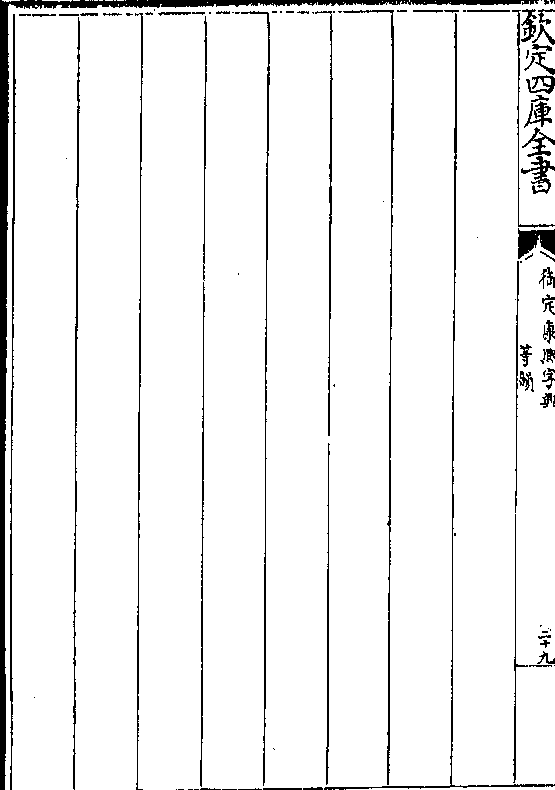 欽定四庫全書
御定康熙字典
等韻
二十九